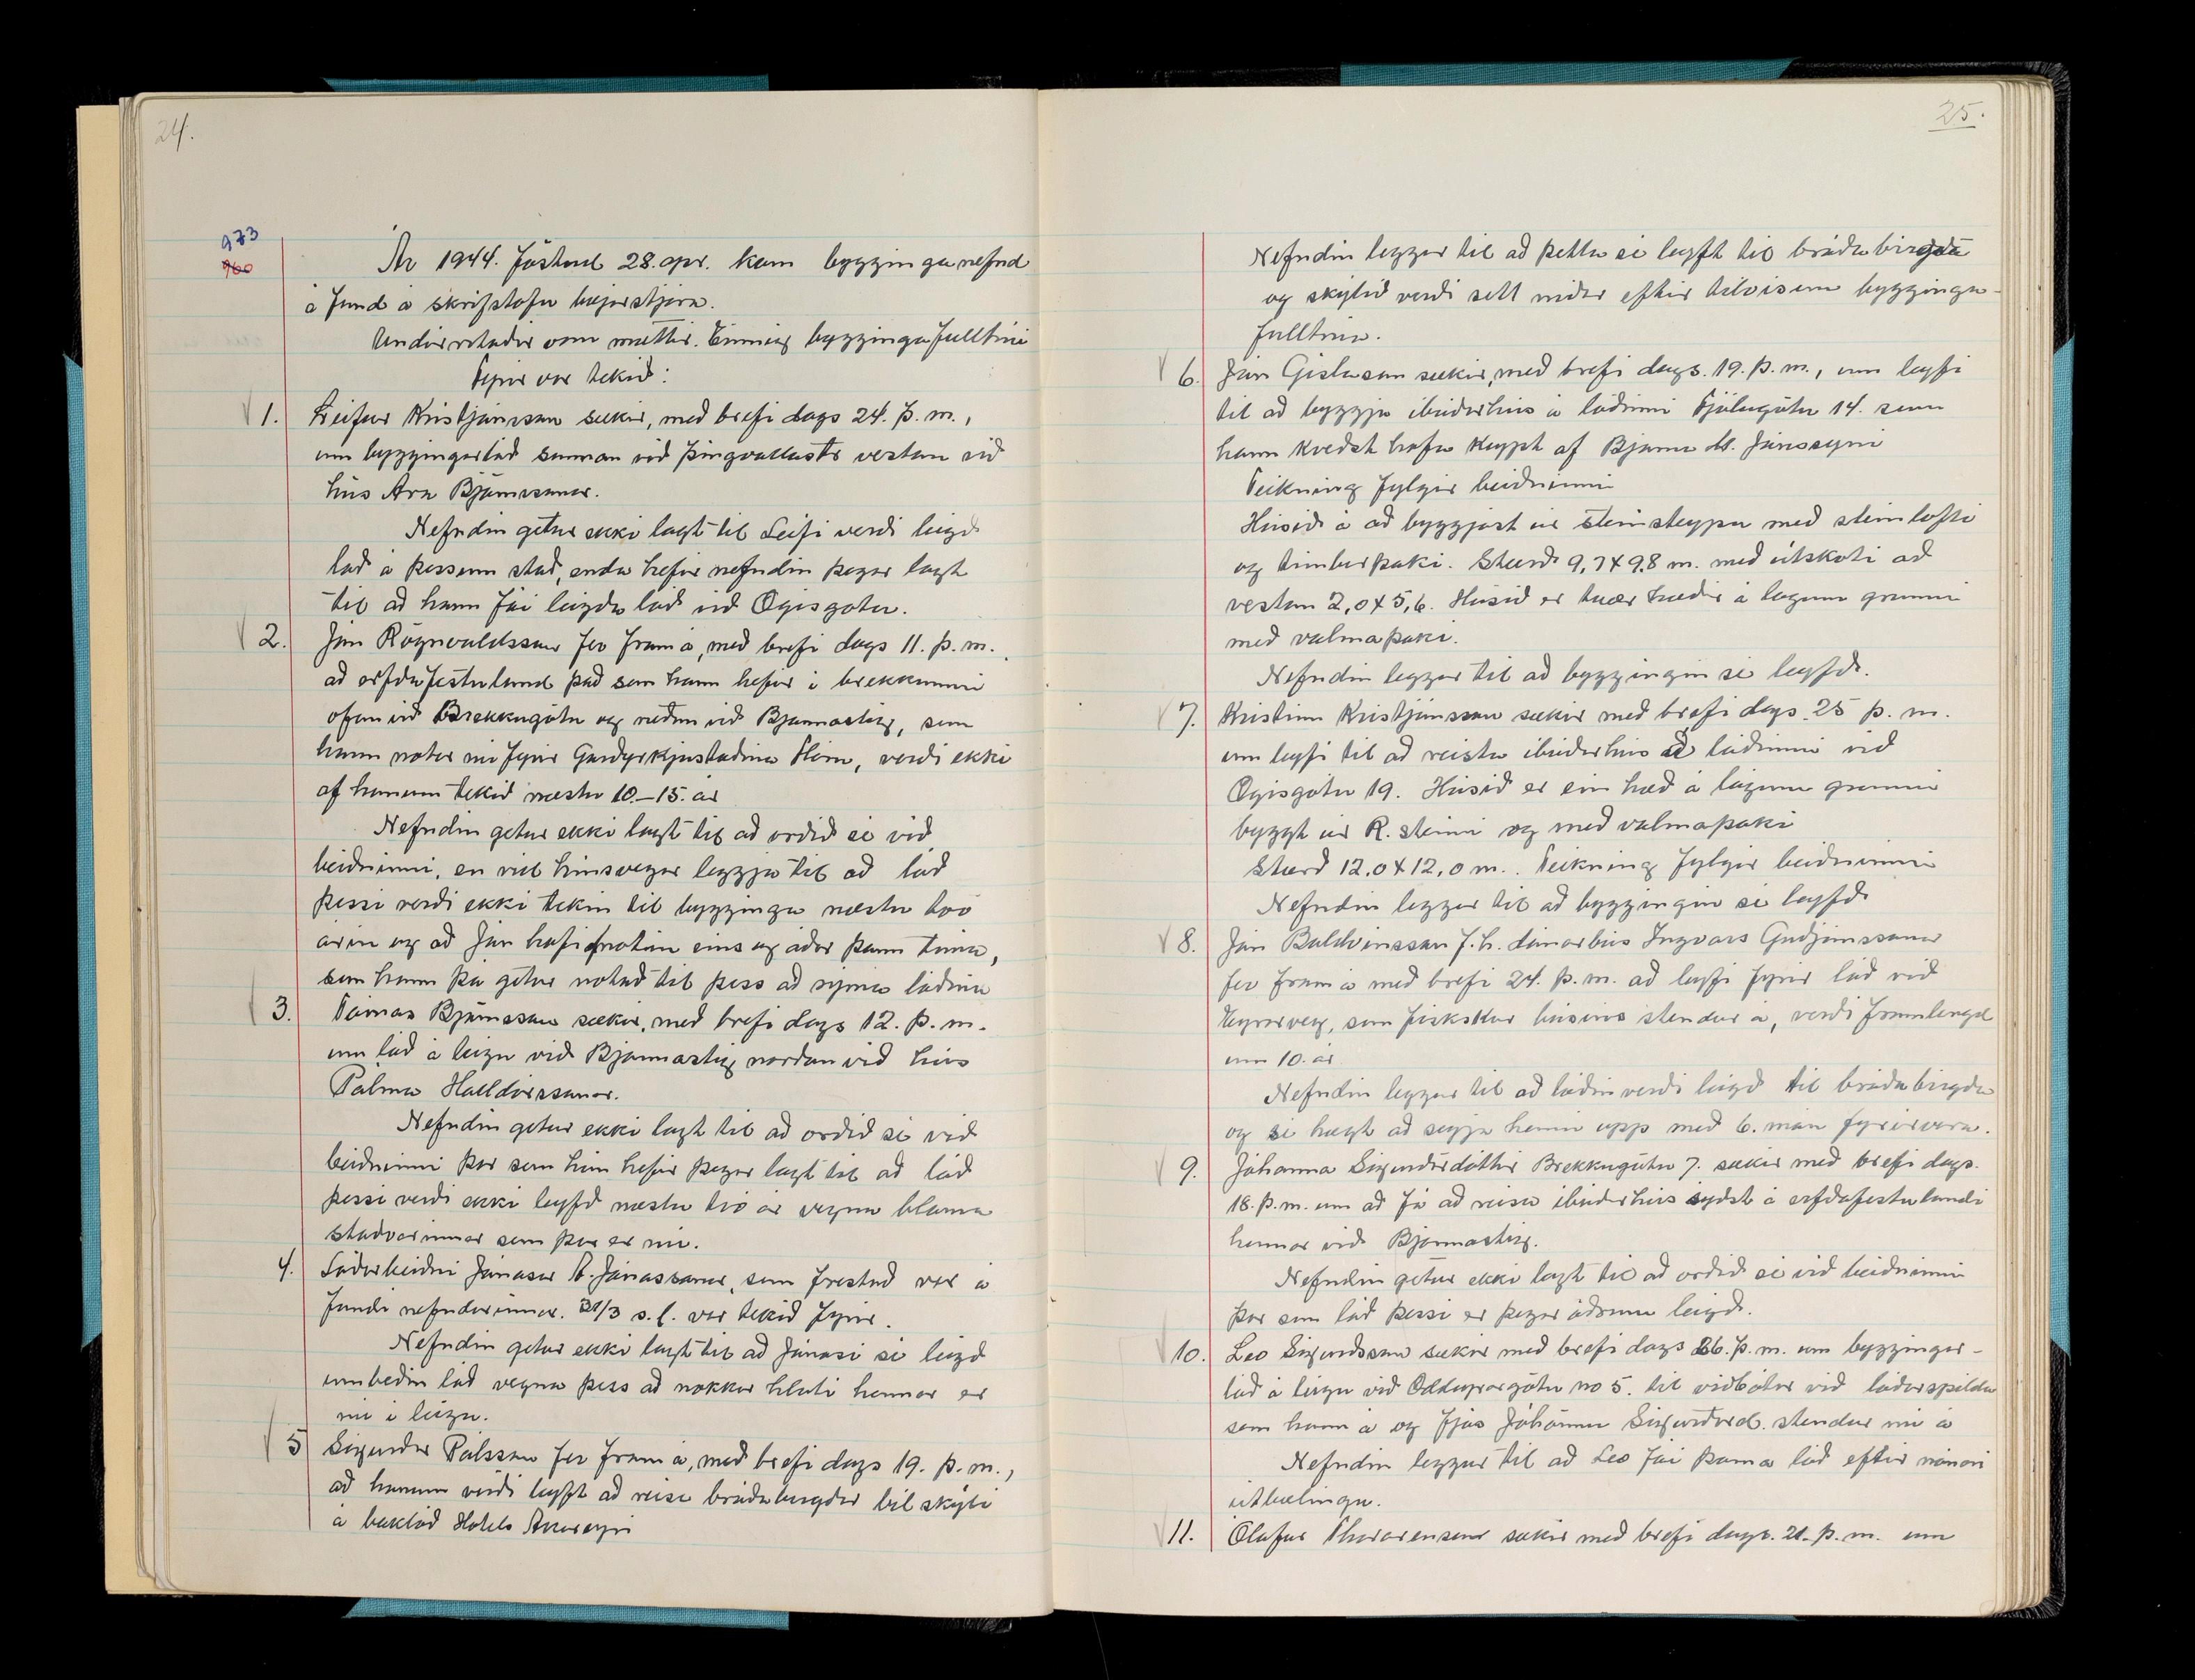 24.
973
960
Ár 1944. föstud 28. apr. kom bygginganefnd
á fund á skrifstofu bæjarstjóra.
Undirritadir voru mættir. Einnig byggingafulltrúi
Fyrir var tekid:
1. Leifur Kristjánsson sækir, med brefi dags 24. þ. m.,
um byggingarlód sunnan vid þingvallastr vestan vid
hús Ara Björnssonar.
Nefndin getur ekki lagt til Leifi verdi leigd
lód á þessum stad, enda hefir nefndin þegar lagt
til ad hann fái leigda lód vid Ægisgötu.
2. Jón Rögnvaldsson fer fram á, med brefi dags 11. þ. m.
ad erfdafestuland þad sem hann hefir í brekkunni
ofan vid Brekkugötu og nedan vid Bjarmastig, sem
hann notar nú fyrir Gardyrkjustödina Flóru, verdi ekki
af honum tekid næstu 10.-15. ár
Nefndin getur ekki lagt til ad ordid sé vid
beidninni, en vill hinsvegar leggja til ad lód
þessi verdi ekki tekin til bygginga næstu tvö
árin og ad Jón hafi notin eins og ádur þann tíma,
sem hann þá getur notad til þess ad rýma lódina
3. Tómas Björnsson sækir, med brefi dags 12. þ. m.
um lód á leigu vid Bjarmastig nordan vid hús
Pálma Halldórssonar.
Nefndin getur ekki lagt til ad ordid sé vid
beidninni þar sem hún hefir þegar lagt til ad lód
þessi verdi ekki leyfd næstu tvö ár vegna blóma
stödvarinnar sem þar er nú.
4. Lódarbeidni Jónasar A. Jónassonar, sem frestad var á
fundi nefndarinnar. 31/3 s.l. var tekid fyrir.
Nefndin getur ekki lagt til ad Jónasi sé leigd
umbedin lód vegna þess ad nokkur hluti hennar er
nú í leigu.
5 Sigurdur Pálsson fer fram á, med brefi dags 19. þ. m.,
ad honum verdi leyft ad reisa brádabirgdar bílskýli
á baklód Hotels Akureyri
25.
Nefndin leggur til ad þetta sé leyft til brádabirgda
og skýlid verdi sett nidur eftir tilvísun bygginga-
fulltrúa.
6. Jón Gislason sækir, med brefi dags. 19. þ. m., um leyfi
til ad byggja íbúdarhús á lódinni Fjólugötu 14. sem
hann kvedst hafa keypt af Bjarna M. Jónssyni
Teikning fylgir beidninni
Húsid á ad byggjast úr steinsteypu med steinlofti
og timburþaki. Stærd 9,7 x 9,8 m. med útskoti ad
vestan 2,0 x 5,6. Húsid er tvær hædir á lágum grunni
med valmaþaki.
Nefndin leggur til ad byggingin sé leyfd.
7. Kristinn Kristjánsson sækir med brefi dags. 25 þ. m.
um leyfi til ad reisa íbúdarhús á lódinni vid
Ægisgötu 19. Húsid er ein hæd á lágum grunni
byggt úr R. steini og med valmaþaki
Stærd 12,0 x 12,0 m.. Teikning fylgir beidninni
Nefndin leggur til ad byggingin sé leyfd
8. Jón Baldvinsson f. h. dánarbús Ingvars Gudjónssonar
fer fram á med brefi 24. þ. m. ad leyfi fyrir lód vid
Eyrarveg, sem fiskskúr búsins stendur á, verdi framlengd
um 10. ár
Nefndin leggur til ad lódin verdi leigd til brádabirgda
og sé hægt ad segja henni upp med 6. mán fyrirvara.
9. Jóhanna Sigurdardóttir Brekkugötu 7. sækir med brefi dags.
18. þ. m. um ad fá ad reisa íbúdarhús sydst á erfdafestulandi
hennar vid Bjarmastig.
Nefndin getur ekki lagt til ad ordid sé vid beidninni
þar sem lód þessi er þegar ödrum leigd.
10. Leo Sigurdsson sækir med brefi dags 26. þ. m. um byggingar-
lód á leigu vid Oddeyrargötu no 5. til vidbótar vid lódarspildu
sem hann á og fjós Jóhönnu Sigurdard. stendur nú á
Nefndin leggur til ad Leo fái þarna lód eftir nánari
útmælingu.
11. Ólafur Thorarensen sækir med brefi dags. 21. þ. m. um